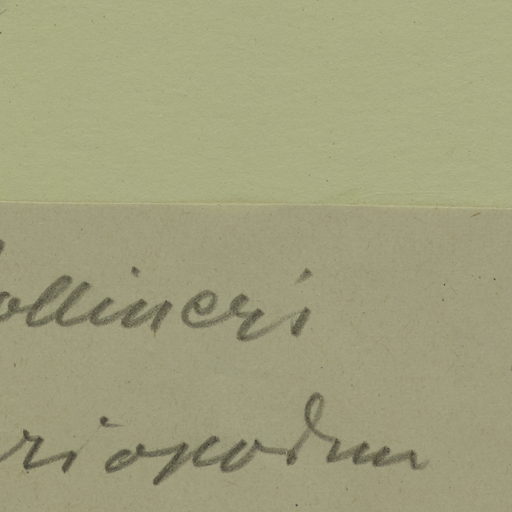 ollineri
riopodum